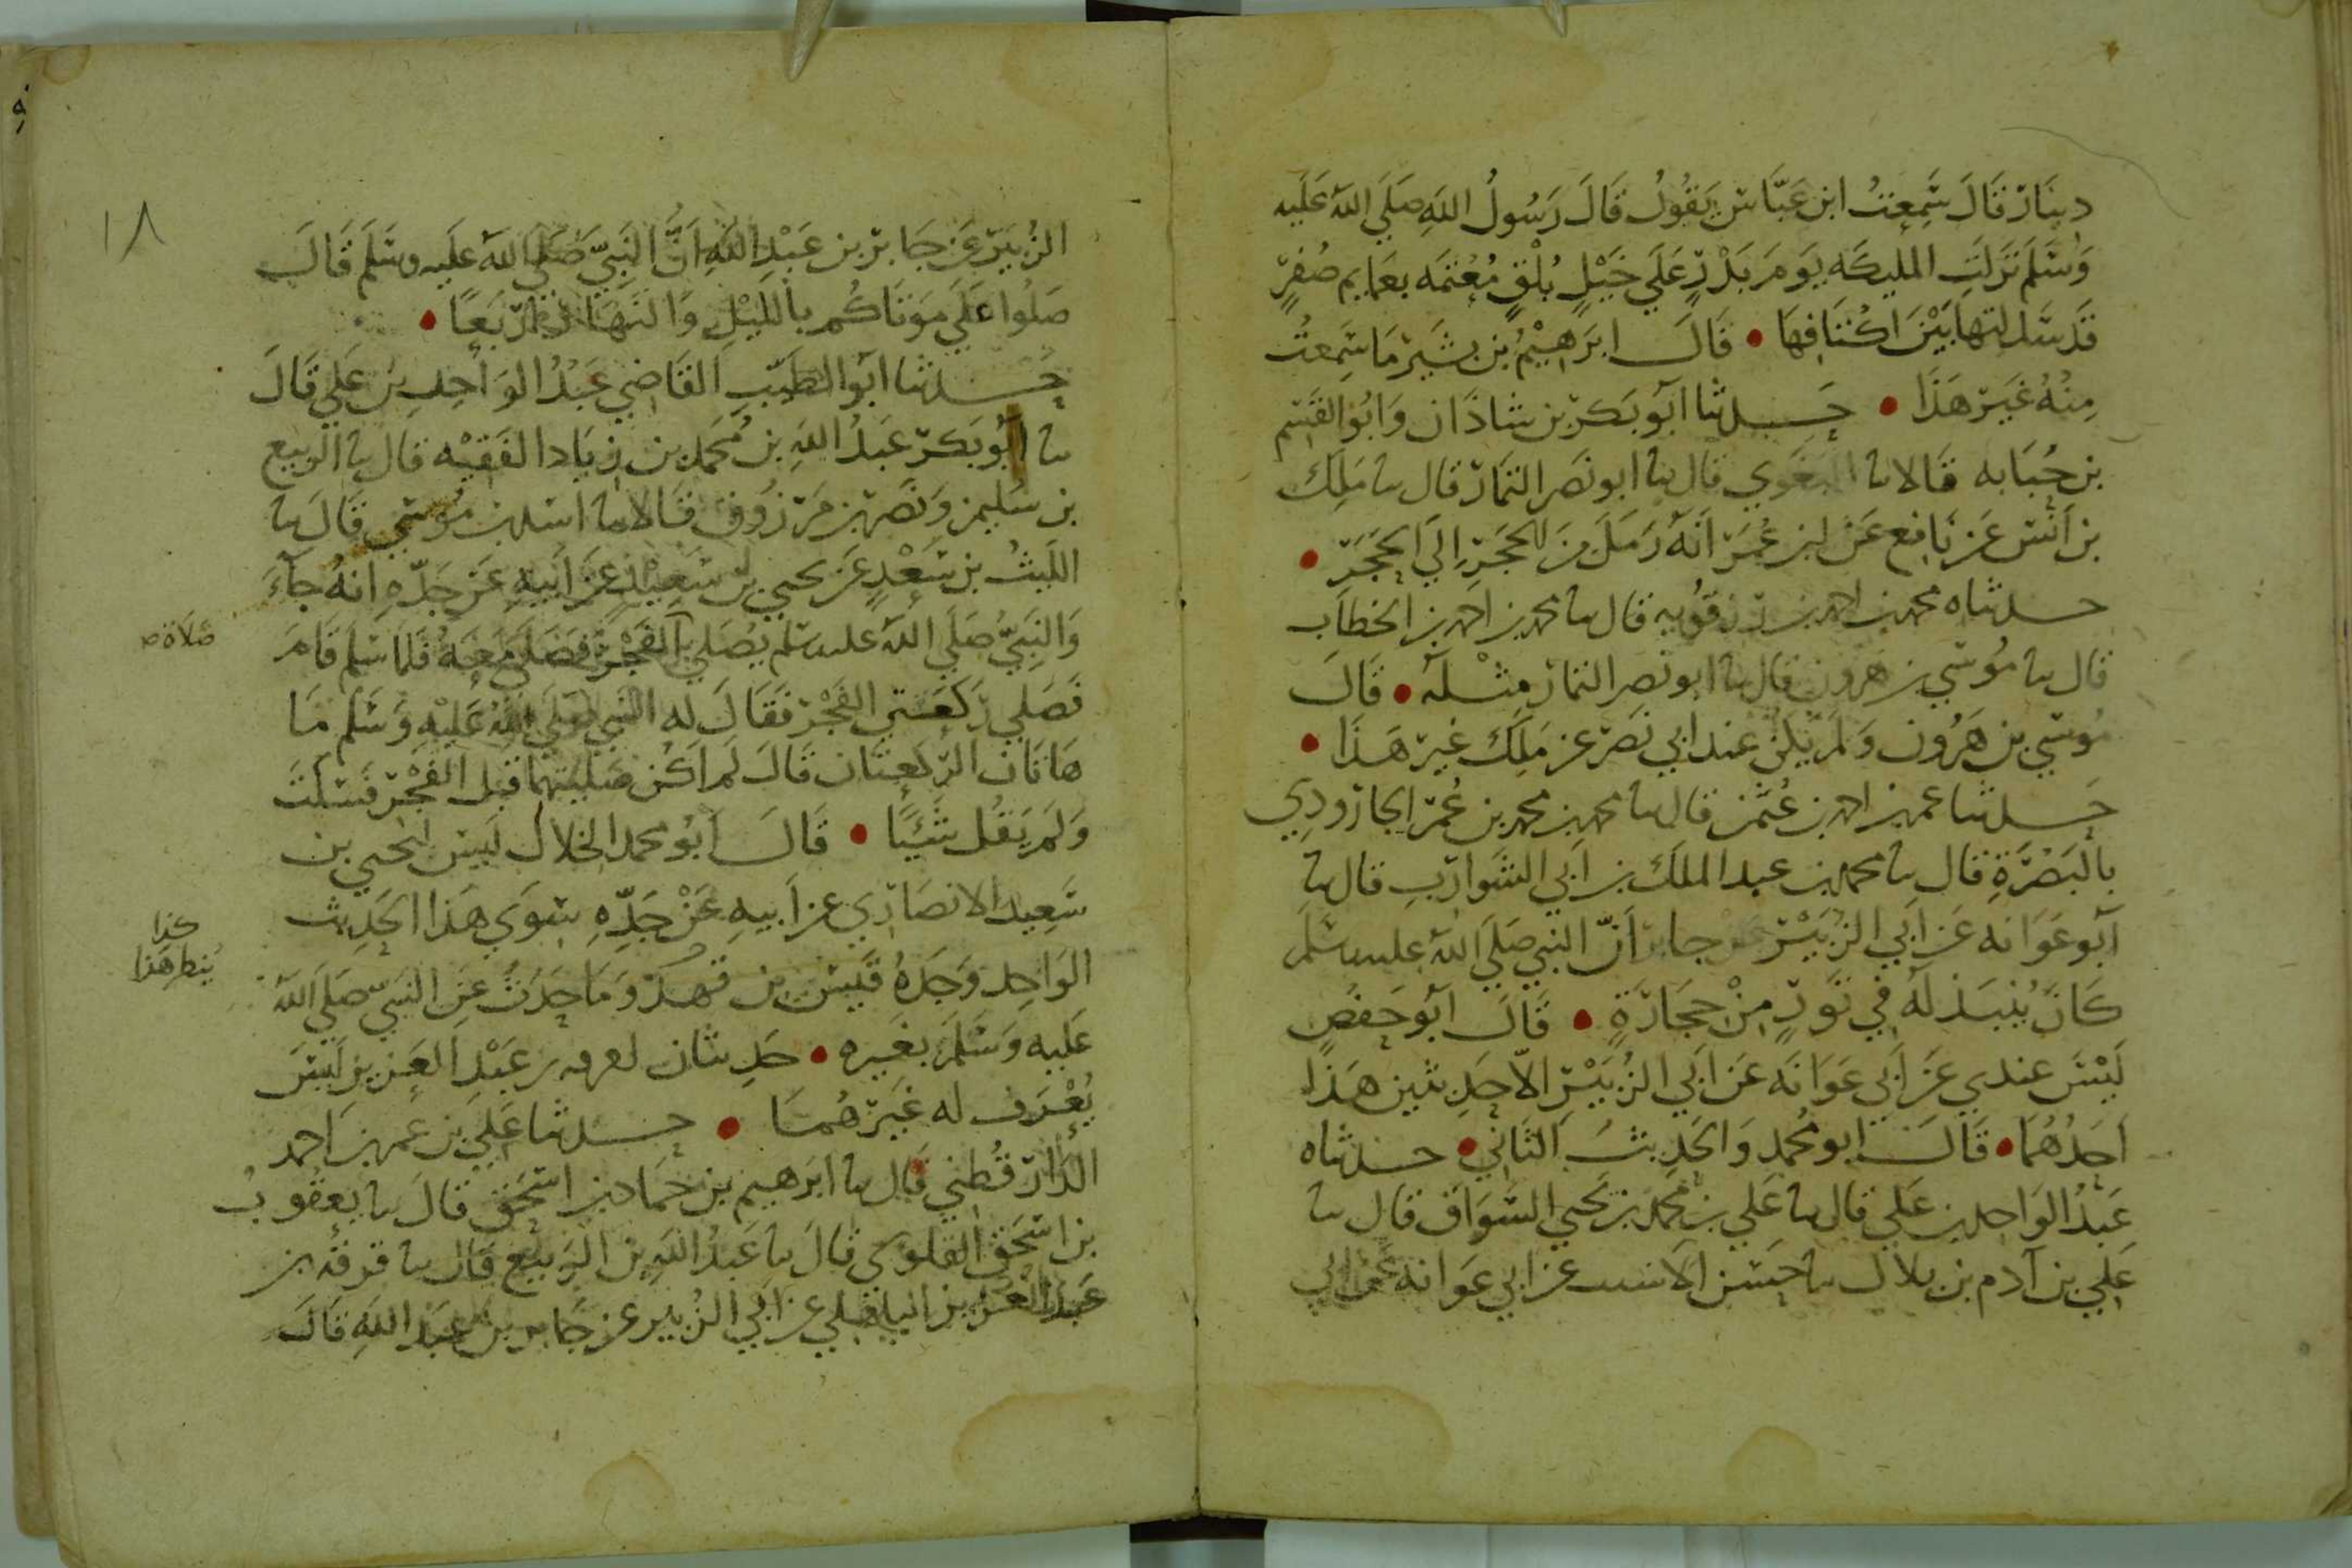 دينار قال سمعت ابن عباس يقول قال رسول الله صلى الله عليه
وسلم نزلت المليكه يوم بدر على خيل بلق معتمه بعمايم صفر
قد سدلتها بين اكتافها • قال ابرهيم بن بشير ما سمعت
منه غير هذا • حدثنا ابو بكر بن شاذان وابو القسم
بن حبابه قالا نا البغوي قال نا ابو نصر التمار قال نا ملك
بن انس عن نافع عن ابن عمر انه رمل من الحجر الى الحجر •
حدثناه محمد بن احمد بن رزقويه قال نا محمد بن احمد بن الخطاب
قال نا موسى بن هرون قال نا ابو نصر التمار مثله • قال
موسى بن هرون ولم يكن عند ابي نصر عن ملك غير هذا •
حدثنا عمر بن احمد بن عثمن قال نا محمد بن محمد بن عمر الجارودي
بالبصرة قال نا محمد بن عبد الملك بن ابي الشوارب قال نا
ابو عوانه عن ابي الزبير عن جابر ان النبي صلى الله عليه وسلم
كان ينبذ له في تور من حجارة • قال ابو حفص
ليس عندي عن ابي عوانه عن ابي الزبير الا حديثين هذا
احدهما • قال ابو محمد والحديث الثاني • حدثناه
عبد الواحد بن علي قال نا علي بن محمد بن يحيى السواق قال نا
علي بن آدم بن بلال نا حسن الاشيب عن ابي عوانه عن ابي
١٨
الزبير عن جابر بن عبد الله ان النبي صلى الله عليه وسلم قال
صلوا على موتاكم بالليل والنهار اربعا •
حدثنا ابو الطيب القاضي عبد الواحد بن علي قال
نا ابو بكر عبد الله بن محمد بن زياد الفقيه قال نا الربيع
بن سليمن ونصر بن مرزوق قالا نا اسد بن موسى قال نا
الليث بن سعد عن يحيى بن سعيد عن ابيه عن جده انه جاء
والنبي صلى الله عليه وسلم يصلي الفجر فصلى معه فلما سلم قام
صلاة صح
فصلى ركعتي الفجر فقال له النبي صلى الله عليه وسلم ما
هاتان الركعتان قال لم اكن صليتهما قبل الفجر فسكت
ولم يقل شيئا • قال ابو محمد الخلال ليس ليحيى بن
سعيد الانصاري عن ابيه عن جده سوى هذا الحديث
كذا
ينظر هذا
الواحد وجده قيس بن قهد وما حدث عن النبي صلى الله
عليه وسلم بغيره • حديثان لعرفه بن عبد العزيز ليس
يعرف له غيرهما • حدثنا علي بن عمر بن احمد
الدارقطني قال نا ابرهيم بن حماد بن اسحق قال نا يعقوب
بن اسحق القلوسي قال نا عبد الله بن الربيع قال نا
عبد العزيز عن ابي الزبير عن جابر بن عبد الله قال